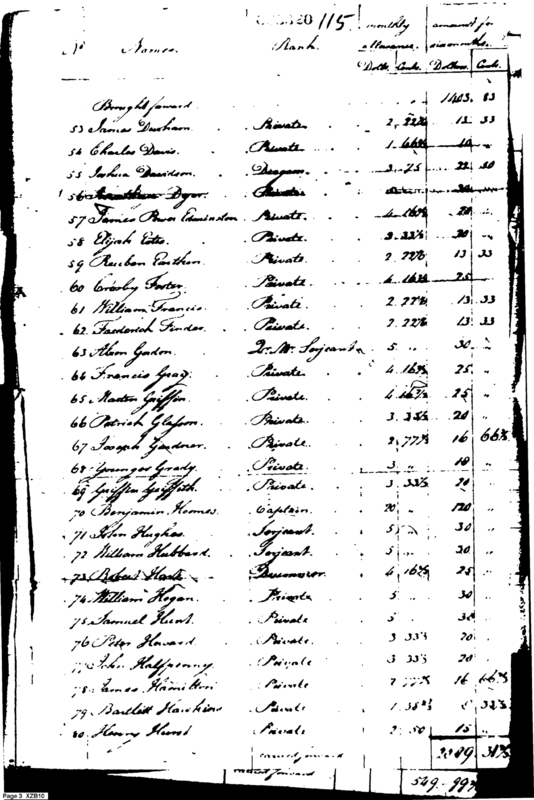 115
monthly amount for
No Names. Rank. allowance. six months.
Dolls. Cents. Dollars. Cents.
Brought forward 1403. 83
53 James Durham Private 2. 22⅔ 13 33
54 Charles Davis. Private 1. 66⅔ 10
55 Joshua Davidson. Dragoon 3. 75 22 50
56 Dyer. Private 20
57 James Power Edminston Private 4. 16⅔ 20
58 Elijah Estes. Private 3. 33⅓ 20
59 Reuben Earthen Private 2. 22⅔ 13 33
60 Crosby Foster Private 4. 16⅔ 25
61 William Francis Private 2. 22⅔ 13. 33
62. Frederick Finder Private. 2. 22⅔ 13. 33
63 Gordon Qr. Mr. Serjeant 5 „ 30 „
64 Francis Gray Private 4. 16⅔ 25 „
65 Martin Griffin Private 4. 16⅔ 25 „
66 Patrick Private 3. 33⅓ 20 „
67 Joseph Gardner Private 2. 77⅔ 16 66⅔
68 Grady Private 3 „ 18 „
69 Griffin Griffith. Private. 3. 33⅓ 20
70 Benjamin Holmes Captain 20 „ 120 „
71 John Hughes Serjeant 5 „ 30 „
72 William Hubbard. Serjeant 5 „ 30 „
73 Robert Drummer 4 16⅔ 25 „
74 William Hogan Private 5 30 „
75 Samuel Hunt Private 5 30 „
76 Peter Howard Private 3 33⅓ 20 „
77 John Halfpenny Private 3 33⅓ 20 „
78 James Hamilton Private 2 77⅔ 16 66⅔
79 Bartlett Hawkins Private 1. 8 33⅓
80 Henry Hurst Private 2 50 15 „
carried forward
549. 99⅔
Page 3 XZB10